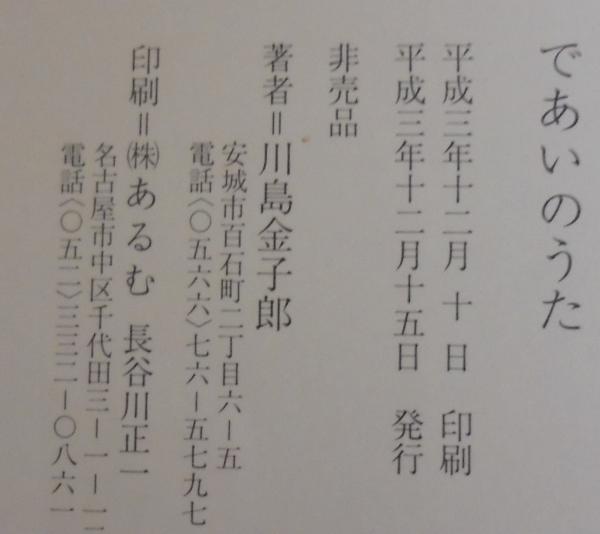 であいのうた
平成三年十二月 十 日 印刷
平成三年十二月十五日 発行
非売品
著者＝川島金子郎
安城市百石町二丁目六―五
電話〈〇五六六〉七六―五七九七
印刷＝㈱あるむ 長谷川正一
名古屋市中区千代田三―一―一二
電話〈〇五二〉三三二―〇八六一